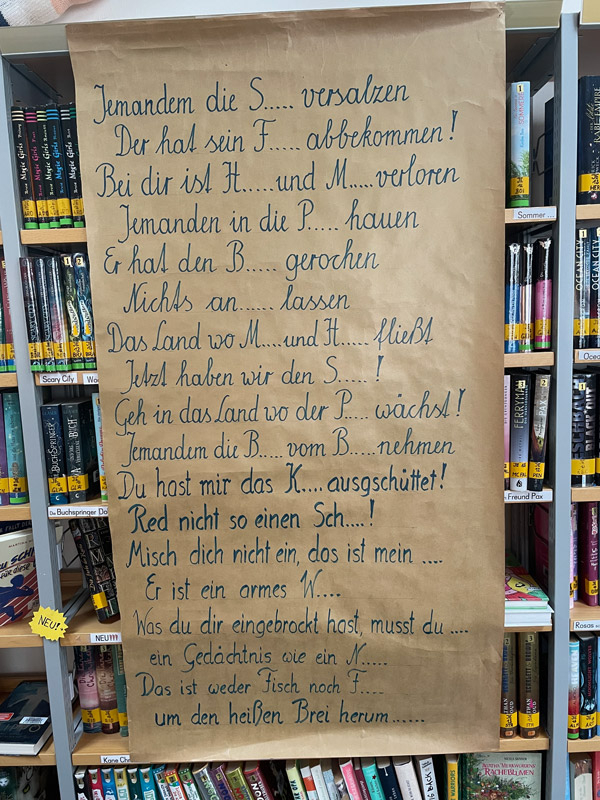 Jemandem die S..... versalzen
Der hat sein F..... abbekommen!
Bei dir ist H.....und M.....verloren
Jemanden in die P..... hauen
Er hat den B..... gerochen
Nichts an...... lassen
Das Land wo M....und H..... fließt
Jetzt haben wir den S.....!
Geh in das Land wo der P..... wächst!
Jemandem die B.... vom B.....nehmen
Du hast mir das K.... ausgschüttet!
Red nicht so einen Sch....!
Misch dich nicht ein, das ist mein ....
Er ist ein armes W....
Was du dir eingebrockt hast, musst du ....
ein Gedächtnis wie ein N.....
Das ist weder Fisch noch F....
um den heißen Brei herum......
Sommer ...
Scary City
Der Buchspringer
Freund Pax
NEU!
NEU!!!
Rosas
FERRYMAN
PAX
OCEAN CITY
Magic Girls
Magic Girls
Magic Girls
Magic Girls
AGATHA MERKWÜRDENS
RACHEBLUMEN